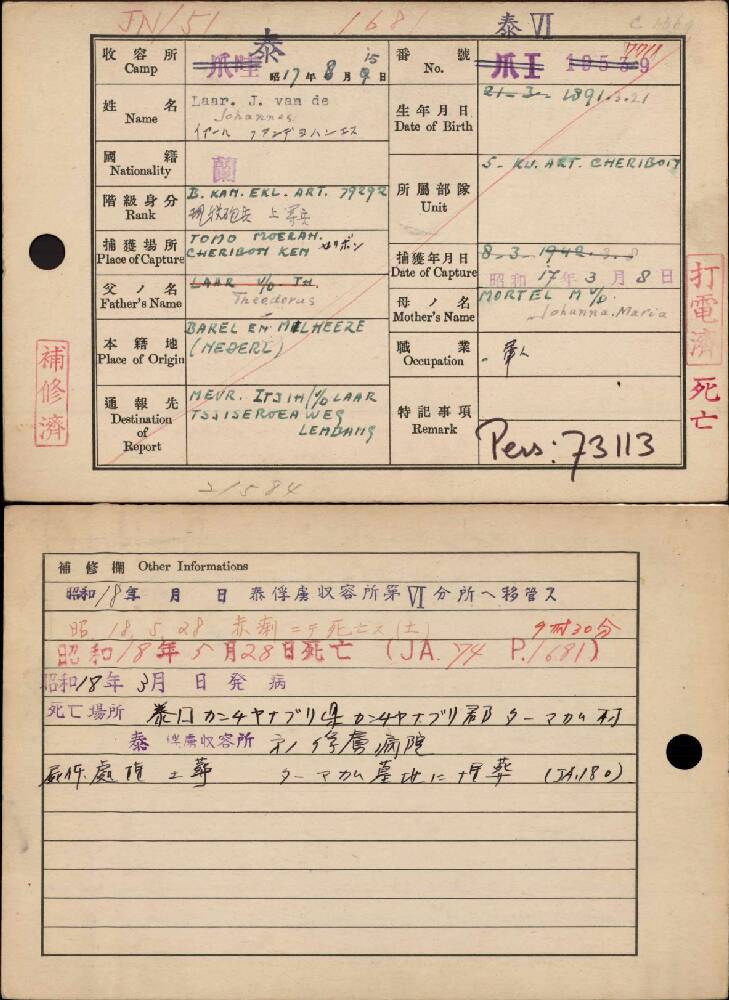 JN/51 1681 泰VI
收容所 Camp 爪哇 泰 昭17年8月15日 番號 No. 爪I 19539 7711
姓名 Name Laar. J. van de 生年月日 Date of Birth 21-3-1891.3.21
Johannes
國籍 Nationality 蘭 所屬部隊 Unit 5-KU. ART. CHERIBON
階級身分 Rank B. KAN. EKL. ART. 79292
捕獲場所 Place of Capture TOMO MOERAH. 捕獲年月日 Date of Capture 8-3-1942.3.8
CHERIBON KEN チリボン 昭和17年3月8日
父ノ名 Father's Name LAAR v/d TH. 母ノ名 Mother's Name MORTEL M v/d.
Theoderus Johanna. Maria
本籍地 Place of Origin BAKEL EN MILHEEZE 職業 Occupation 軍人
(NEDERL)
通報先 Destination of Report MEVR. ITJIH v/d LAAR 特記事項 Remark Pers: 73113
TSJISEROEA WEG
LEMBANG
補修濟
打電濟
死亡
21584
補修欄 Other Informations
昭和18年 月 日 泰俘虜収容所第VI分所ヘ移管ス
昭18.5.28 赤痢ニテ死亡ス(土) 9時30分
昭和18年5月28日死亡 (JA.74 P.1681)
昭和18年3月 日発病
死亡場所 泰国カンチヤナブリ県カンチヤナブリ郡ターマカム村
泰俘虜収容所 俘虜病院
屍体處理 土葬 ターマカム墓地に埋葬 (JA.180)